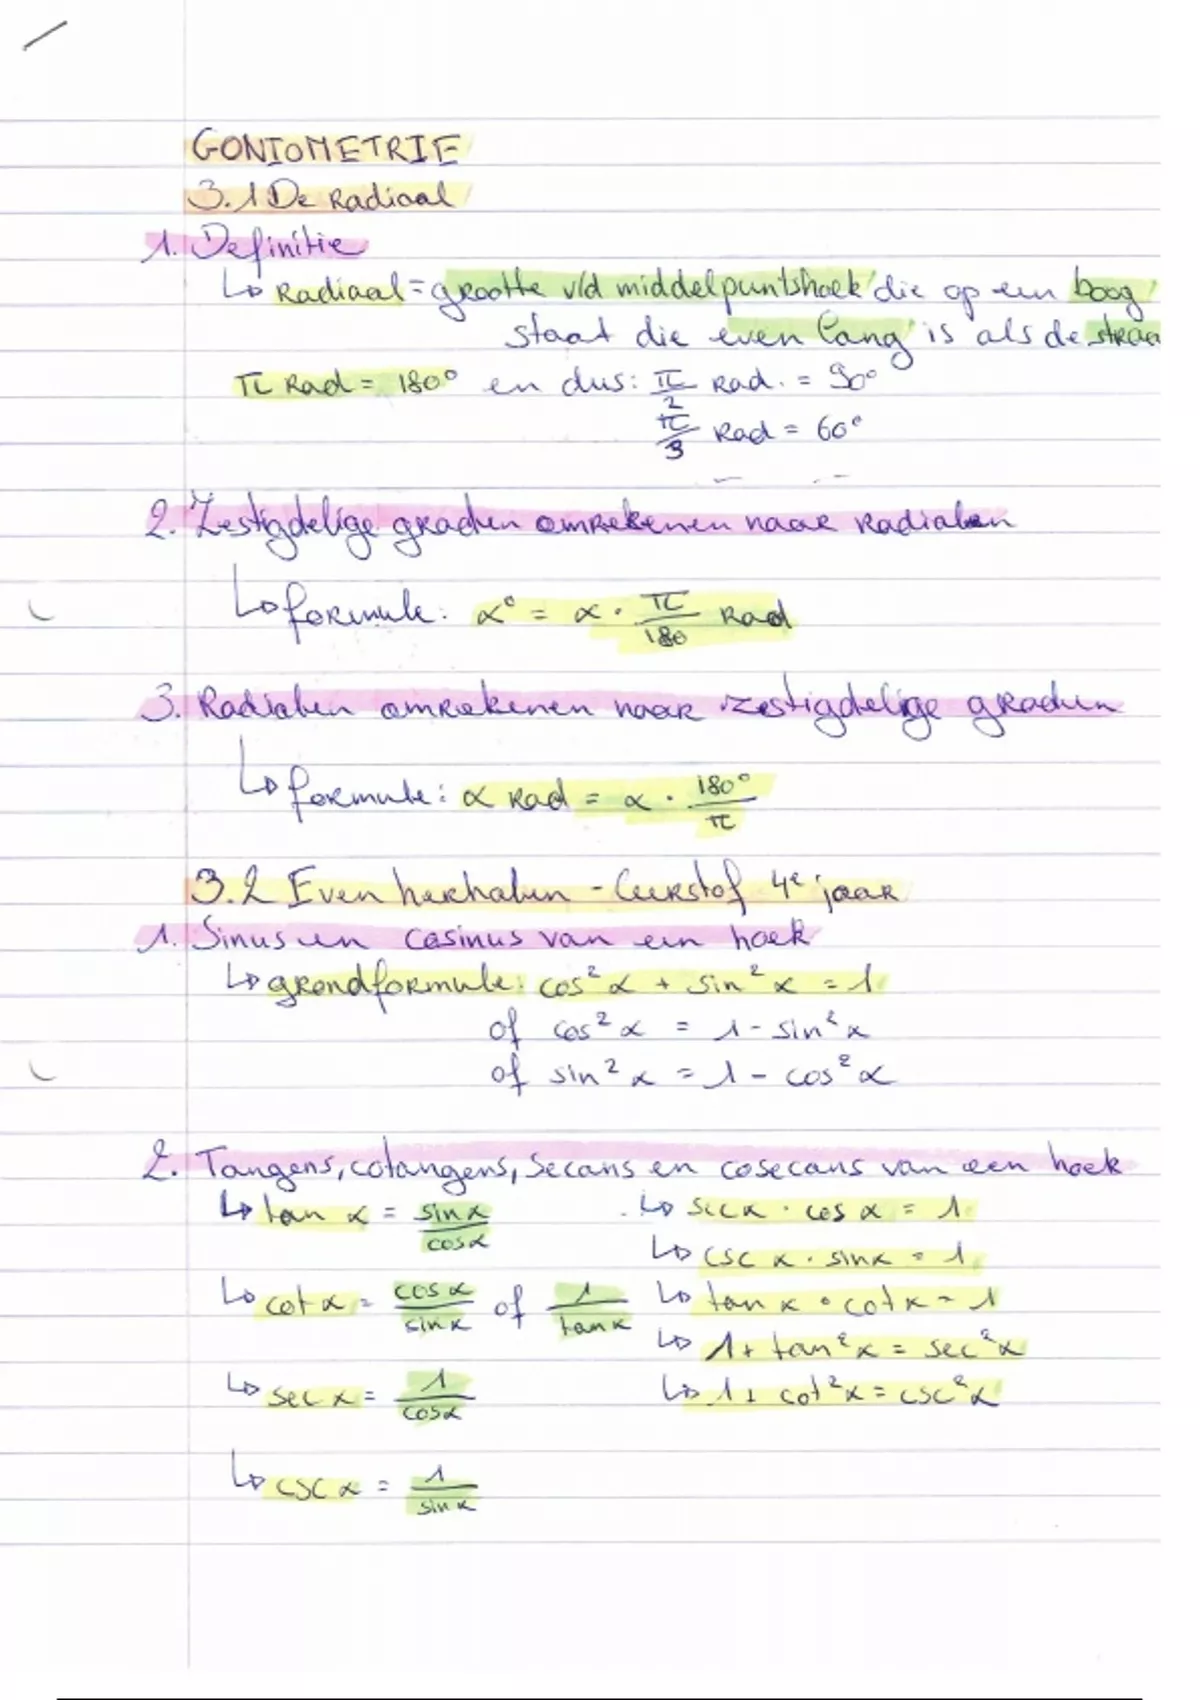 GONIOMETRIE
3.1 De Radiaal
1. Definitie
↳ Radiaal = grootte v/d middelpuntshoek die op een boog
staat die even lang is als de straa
π Rad = 180° en dus: π/2 Rad. = 90°
π/3 Rad = 60°
2. Zestigdelige graden omrekenen naar radialen
↳ formule: α° = α · π/180 Rad
3. Radialen omrekenen naar zestigdelige graden
↳ formule: α Rad = α · 180°/π
3.2 Even herhalen - leerstof 4e jaar
1. Sinus en cosinus van een hoek
↳ grondformule: cos² α + sin² α = 1
of cos² α = 1 - sin² α
of sin² α = 1 - cos² α
2. Tangens, cotangens, secans en cosecans van een hoek
↳ tan α = sin α/cos α
↳ cot α = cos α/sin α of 1/tan α
↳ sec α = 1/cos α
↳ csc α = 1/sin α
↳ sec α · cos α = 1
↳ csc α · sin α = 1
↳ tan α · cot α = 1
↳ 1 + tan² α = sec² α
↳ 1 + cot² α = csc² α